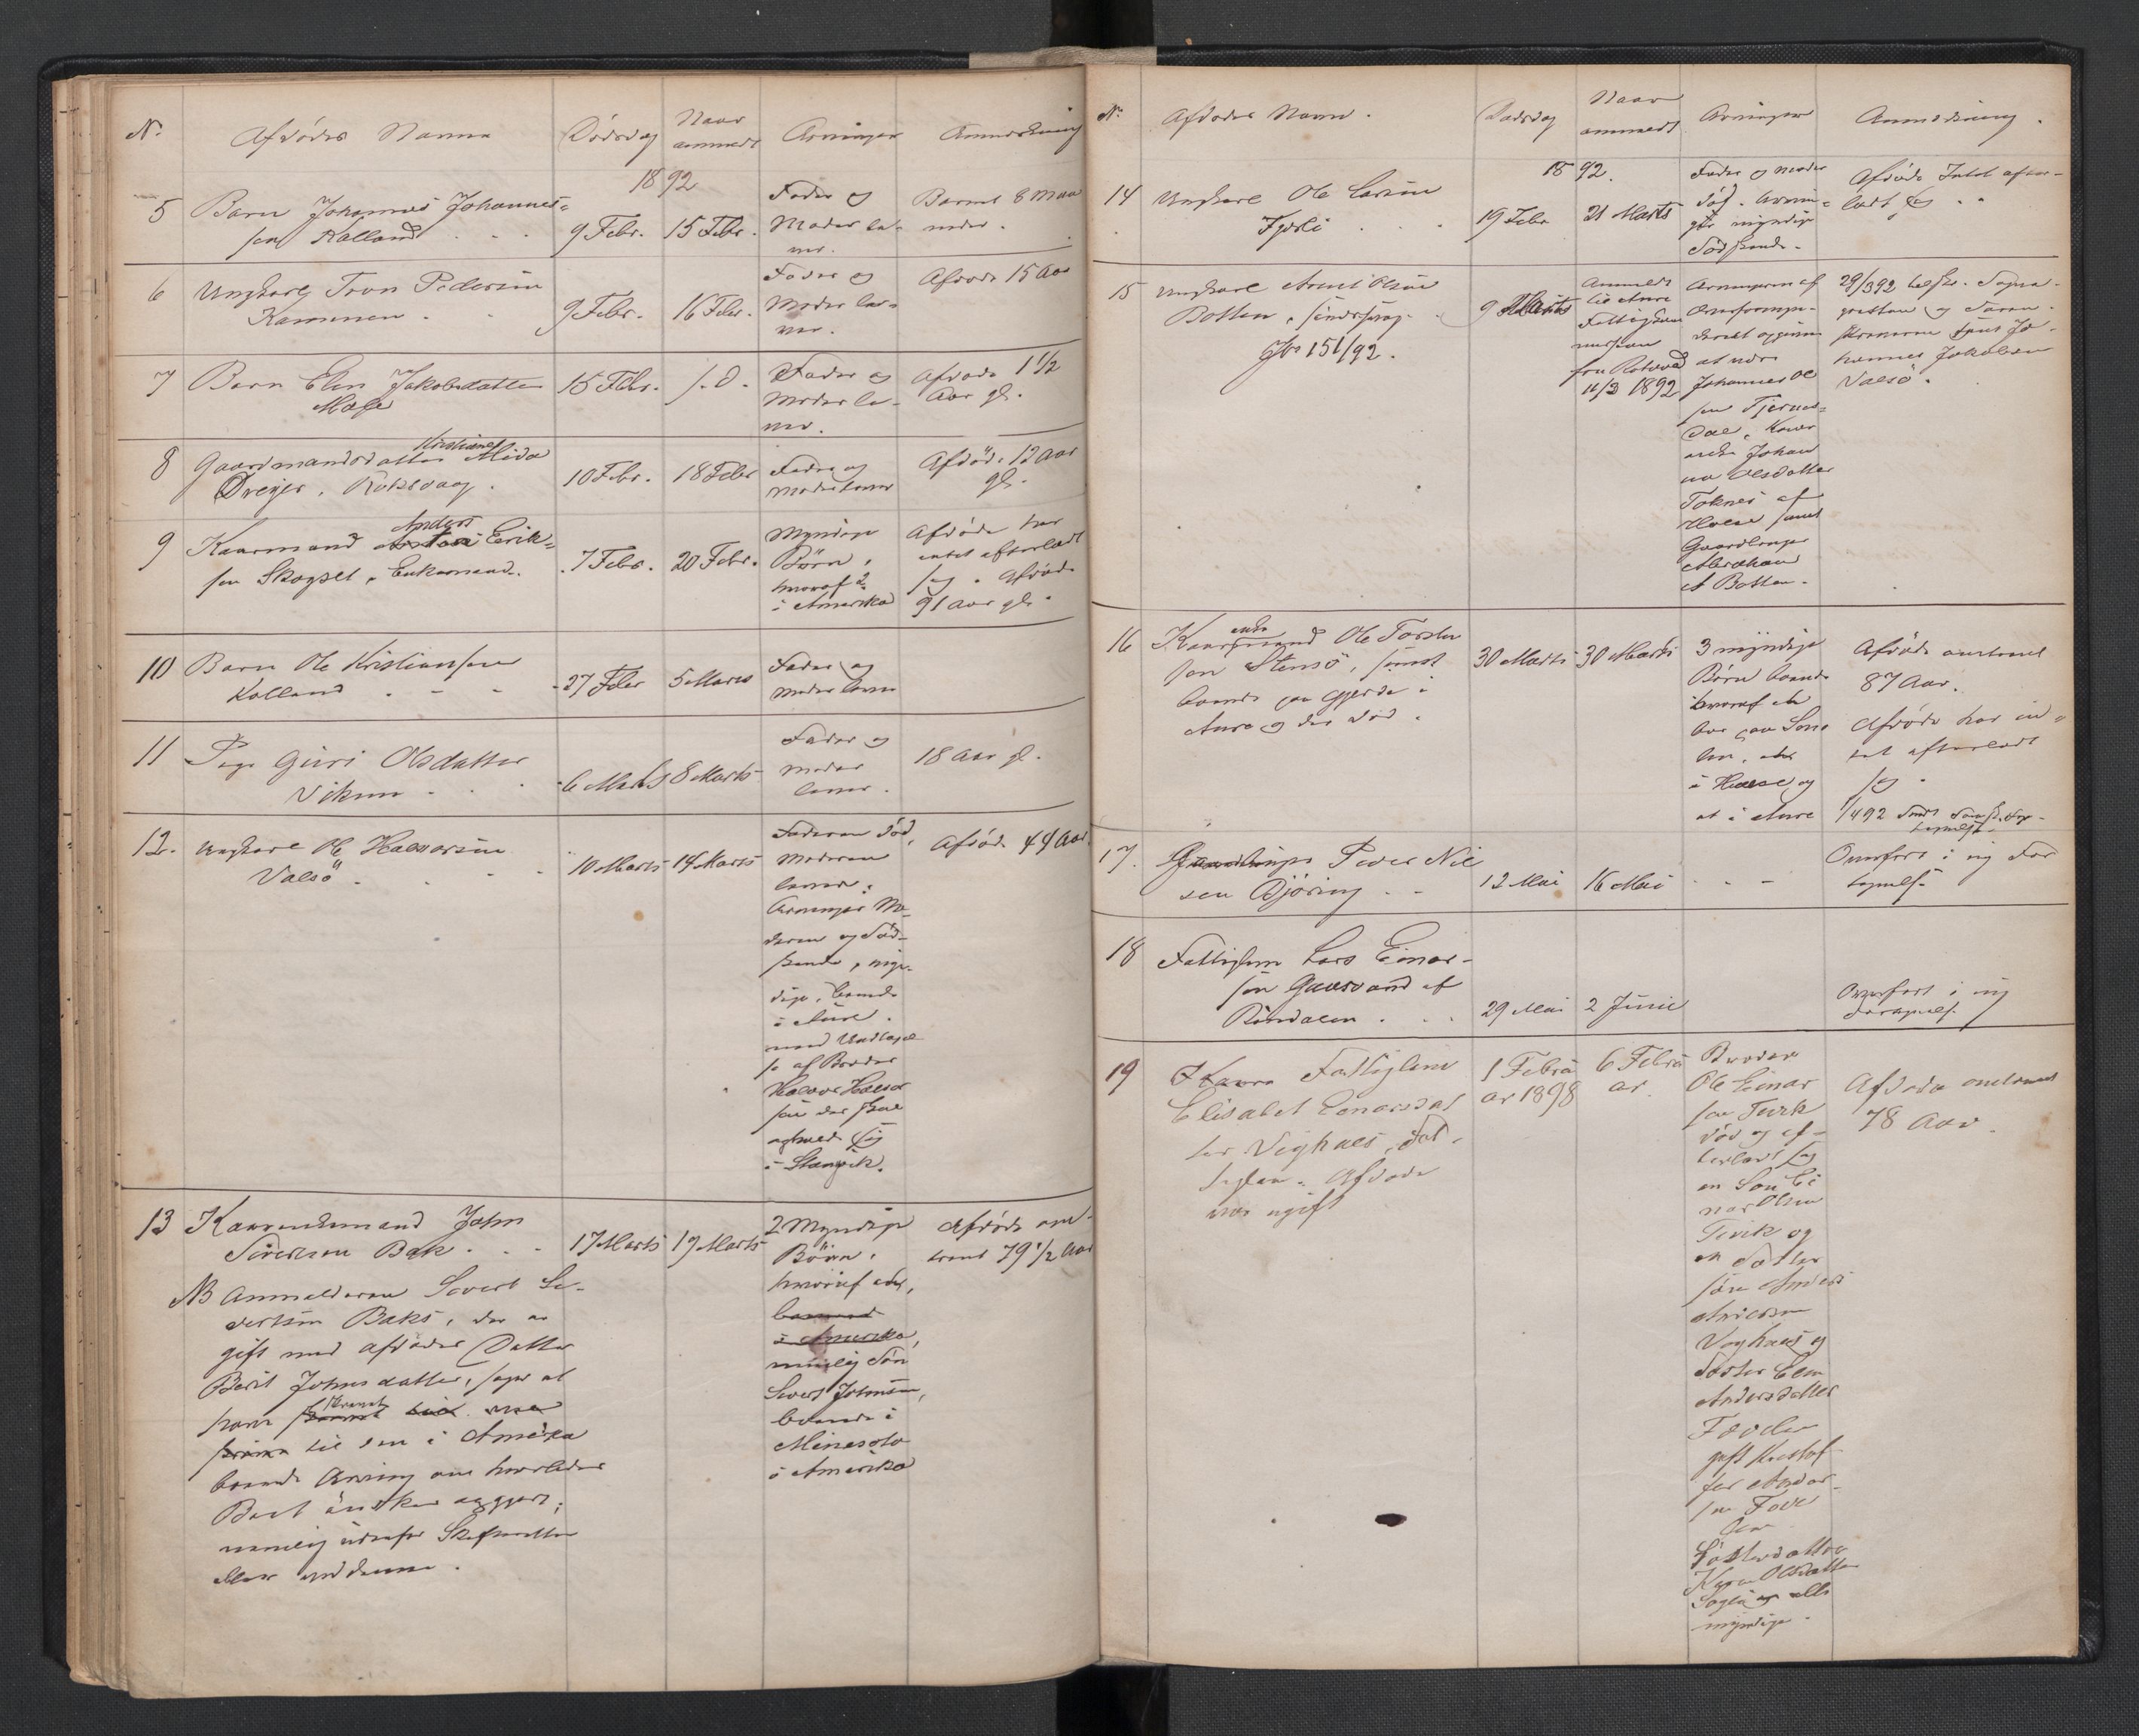 No. Afdødes Navne Dødsdag Naar anmeldt Arvinger Anmerkning
1892
5 Barn Johannes Johannes=
sen Kolland . . . 9 Febr. 15 Febr.
Fader og
Moder le-
ver.
Barnet 8 Maa
neder.
6 Ungkarl Tron Pedersen
Kammen . . 9 Febr. 16 Febr.
Fader og
Moder le-
ver.
Afdøde 15 Aar
7 Barn Elen Jakobsdatter
15 Febr. s. d.
Fader og
Moder le-
ver.
Afdøde 1 1/2
Aar gl.
8 Gaardmandsdatter Kristiane Alida
Dreyer, Roksvaag. 10 Febr. 18 Febr
Fader og
Moder lever
Afdøde 12 Aar
gl.
9 Kaarmand Anders Erik=
sen Skogset, Enkemand. 7 Febr. 20 Febr.
Myndige
Børn,
hvoraf 2
i Amerika
Afdøde har
intet efterladt
sig. Afdøde
91 Aar gl.
10 Barn Ole Kristiansen
Kolland . - - 27 Febr 5 Marts
Fader og
Moder lever
11 Pige Guri Olsdatter
Vikan . . . 6 Marts 8 Marts
Fader og
Moder
lever.
18 Aar gl.
12. Ungkarl Ole Halvorsen
Valsö . . . 10 Marts 14 Marts
Faderen död,
Moderen
lever.
Arvinger Mo-
deren og Sød-
skende, myn-
dige, boende
i Aure.
med Undtagel
se af Broder
Halvor Halvor
sen der skal
opholde sig
i
Afdøde 44 Aar.
13 Kaarenkemand John
Sivertsen Bak . . . 17 Marts 19 Marts
2 Myndige
Börn,
hvoraf een,
boende
i Amerika,
nemlig Sön
Sivert Johnsen,
boende i
Minesota
i Amerika
Afdøde om-
trent 79 1/2 Aar
NB Anmelderen Sivert Si-
vertsen Baks, der er
gift med afdødes Datter
Berit Johnsdatter, siger at
han
til den i Amerika
boende Arving om hvorledes
Boet önskes opgjort,
nemlig ved Skifteretten
eller
No. Afdødes Navne. Dødsdag Naar anmeldt Arvinger Anmerkning.
1892.
14 Ungkarl Ole Larsen
Fjorli . . . 19 Febr 21 Marts
Fader og Moder
død. Arvin-
ger myndige
Sødskende.
Afdøde Intet efter-
ladt sig . .
15 Ungkarl Arnt Olsen
Botten, sindssyg.
Jr 151/92.
9 Marts
Anmeldt
til Aure
Fattigkom
mission
fra Rotvold
11/3 1892
Arvingerne af
at være
Johannes Ol
sen Tjernes-
dal,
Johan
na Olsdatter
Toknes af
Halse samt
Gaardbruger
Abraham
A Botten.
29/3 92 tilskr. Sogne-
presten og
samt Jo-
hannes Jakobsen
Valsö.
16 Kaarenkemand Ole Torsten
sen Stensö, sidst
boende paa Gjerde i
Aure og der død.
30 Marts 30 Marts
3 myndige
Børn boende
hvoraf en
bor paa Smö
len, en
i Halse og
et i Aure
Afdøde omtrent
87 Aar.
Afdøde har in=
tet efterladt
sig.
1/4 92
17. Gaardbruger Peder Nil
sen Björing . - 12 Mai 16 Mai . - -
Overført i ny For
tegnelse
18 Fattiglem Lars Einar-
sen Gaasvand af
Röndalen . . . 29 Mai 2 Juni
Overført i ny
Fortegnelse
19 Fattiglem
Elisabet Einarsdat
ter Vighals,
Afdøde
var ugift
1 Februa
ar 1898
6 Februa
ar.
Broder
Ole Einar
sen Tevik
död og ef-
terladt sig
en Sön Ei
nar Olsen
Tevik og
en Søster
søn Anders
Andersen
Vaghals og
Søster Elen
Andersdatter
gift Kristof
fer Andor
sen
Søsterdatter
Karen Olsdatter
og alle
myndige.
Afdøde omtrent
78 Aar.